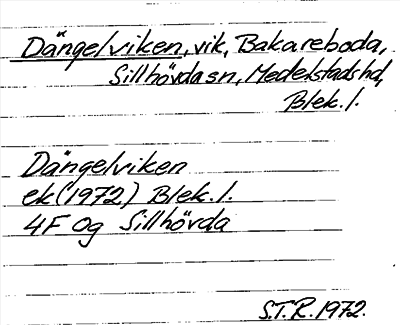 Dängelviken, vik, Bakareboda,
Sillhövda sn, Medelstads hd,
Blek. l.
Dängelviken
ek (1972) Blek. l.
4F 0g Sillhövda
S.T.R. 1972.